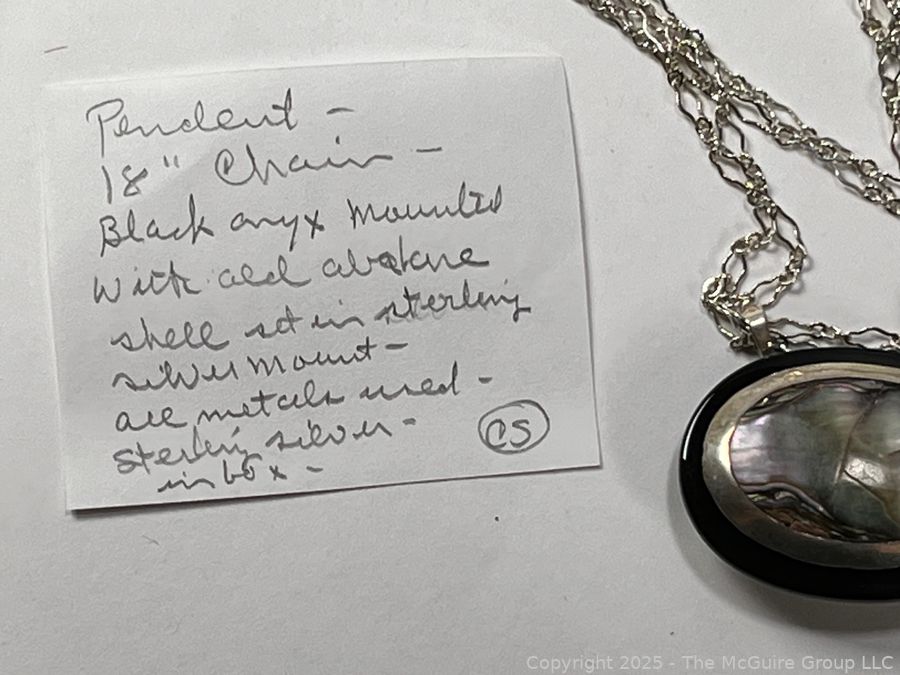 Pendent -
18" Chain -
Black onyx mounted
with old abalone
shell set in sterling
silver mount -
all metals used -
sterling silver -
in box -
CS
Copyright 2025 - The McGuire Group LLC